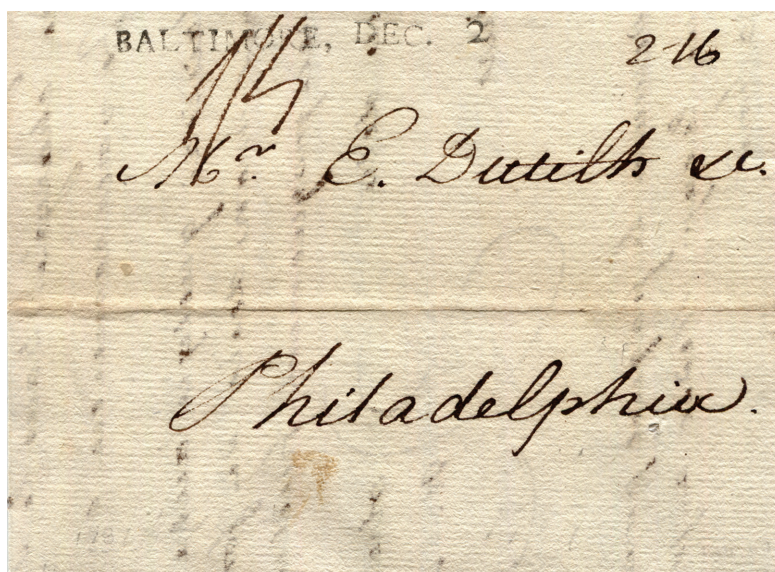 BALTIMORE, DEC. 2
2.16
Mr. E. Dutilh &c.
Philadelphia.